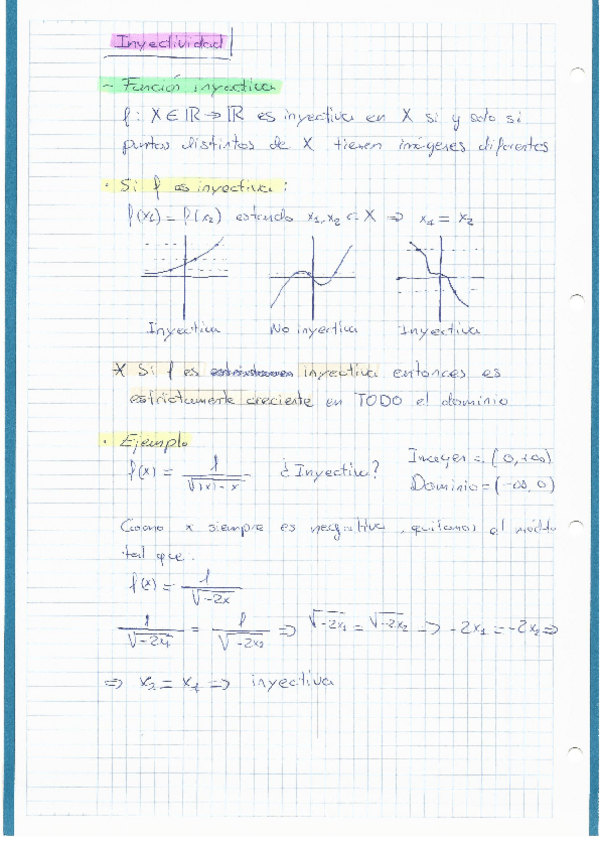 Inyectividad
- Función inyectiva
f: X ∈ ℝ → ℝ es inyectiva en X si y solo si
puntos distintos de X tienen imágenes diferentes
· Si f es inyectiva:
f(x₁) = f(x₂) estando x₁, x₂ ∈ X ⇒ x₁ = x₂
Inyectiva No inyectiva Inyectiva
X Si f es inyectiva entonces es
estrictamente creciente en TODO el dominio
· Ejemplo
f(x) = 1/√(|x| - x) ¿Inyectiva? Imagen = (0, +∞)
Dominio = (-∞, 0)
Como x siempre es negativa, quitamos el módulo
tal que.
f(x) = 1/√(-2x)
1/√(-2x₁) = 1/√(-2x₂) ⇒ √(-2x₁) = √(-2x₂) → -2x₁ = -2x₂ ⇒
⇒ x₂ = x₁ ⇒ inyectiva